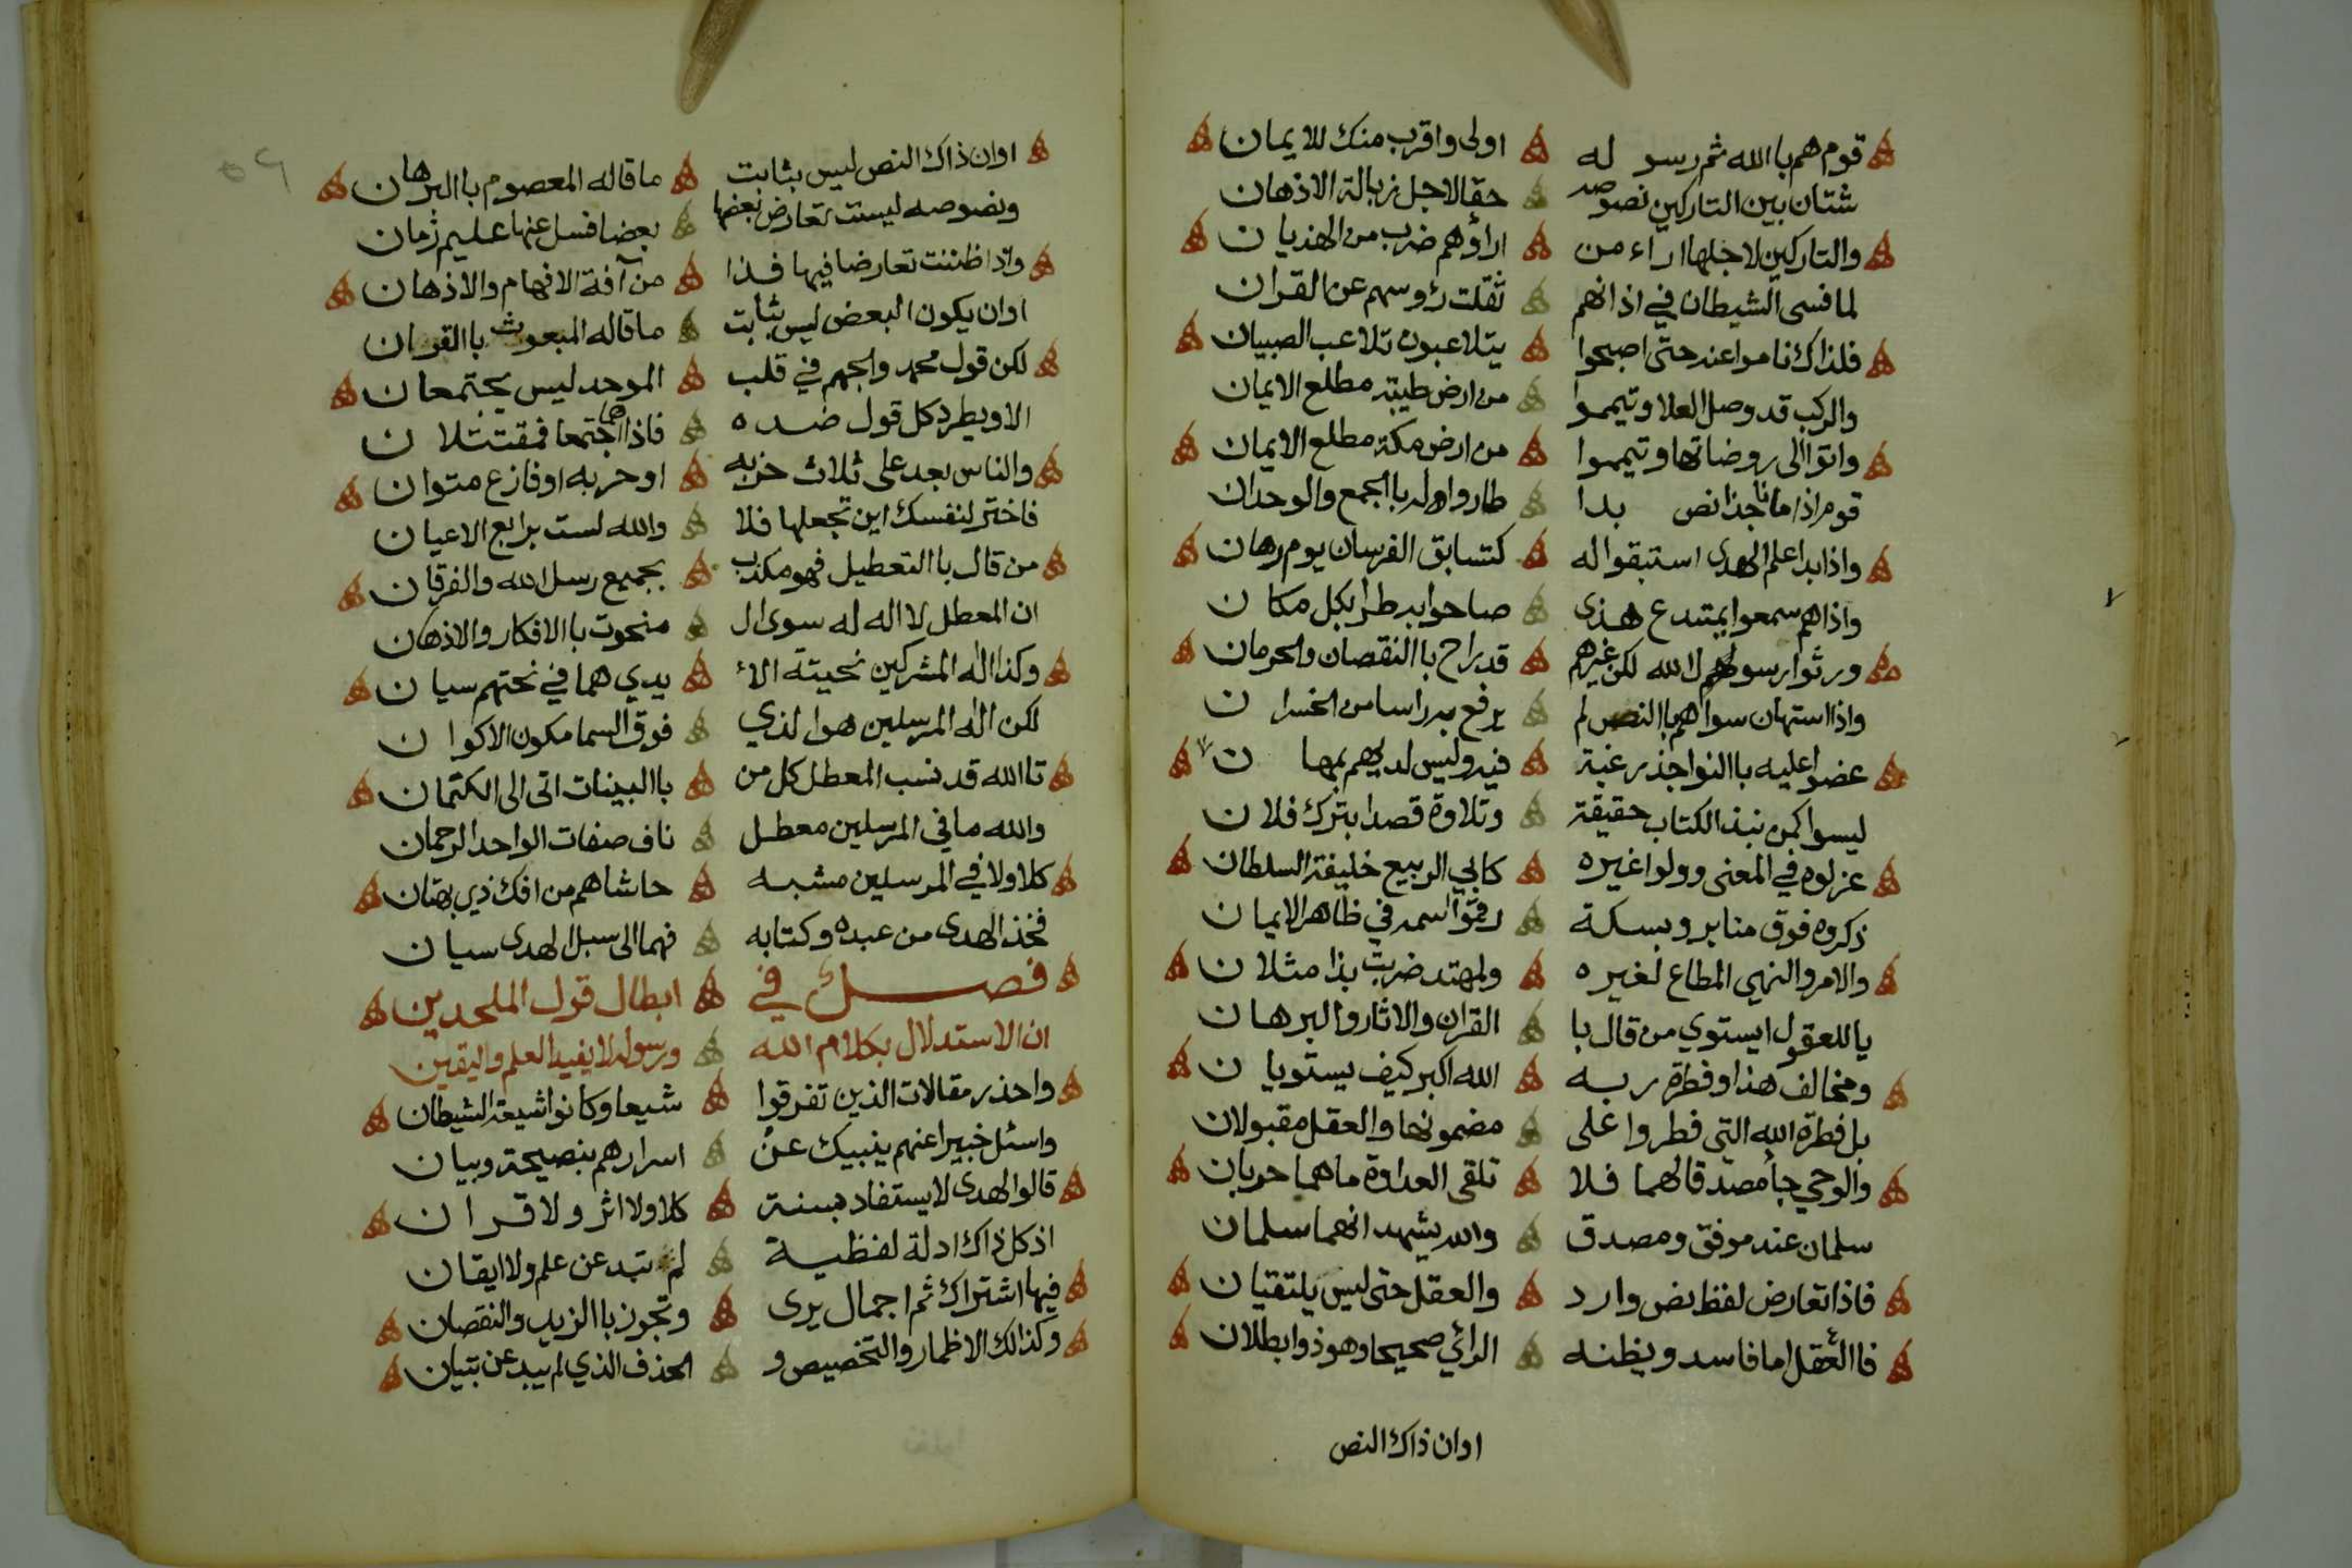 قوم هم باالله ثم رسو له اولى واقرب منك للايمان
شتان بين التاركين نصوصه حقا لاجل زبالة الاذهان
والتاركين لاجلها اراء من اراؤهم ضرب من الهذيان
لما فسى الشيطان في اذانهم ثقلت رؤسهم عن القران
فلذاك ناموا عنه حتى اصبحوا يتلاعبون تلاعب الصبيان
والركب قد وصل العلا وتيمموا من ارض طيبة مطلع الايمان
واتوا الى روضاتها وتيمموا من ارض مكة مطلع الايمان
قوم اذا ما ناجذا نص بدا طاروا له باالجمع والوحدان
واذا بدا علم الهدى استبقوا له كتسابق الفرسان يوم رهان
واذا هم سمعوا بمبتدع هذى صاحوا به طرا بكل مكان
ورثوا رسولهم لا لله لكن غيرهم قد راح باالنقصان والحرمان
واذا استهان سواهم باالنص لم يرفع به راسا من الخسران
عضوا عليه باالنواجذ رغبة فيه وليس لديهم بمهان
ليسوا كمن نبذ الكتاب حقيقة وتلاوة قصدا بترك فلان
عزلوه في المعنى وولوا غيره كابي الربيع خليفة السلطان
ذكروه فوق منابر وبسكة رقموا اسمه في ظاهر الايمان
والامر والنهي المطاع لغيره ولمهتد ضربت بذا مثلان
ياللعقول ايستوي من قال با القران والاثار والبرهان
ومخالف هذا وفطرة ربه الله اكبر كيف يستويان
بل فطرة الله التي فطروا على مضمونها والعقل مقبولان
والوحي جا مصدقا لهما فلا تلقى العداوة ما هما حربان
سلمان عند موفق ومصدق والله يشهد انهما سلمان
فاذا تعارض لفظ نص وارد والعقل حتى ليس يلتقيان
فاالعقل اما فاسد ويظنه الرائي صحيحا وهو ذو ابطلان
اوان ذاك النص
اوان ذاك النص ليس بثابت ما قاله المعصوم باالبرهان
ونصوصه ليست تعارض بعضها بعضا فسل عنها عليم زمان
واذا ظننت تعارضا فيها فذا من آفة الافهام والاذهان
اوان يكون البعض ليس بثابت ما قاله المبعوث باالقران
لكن قول محمد والجهم في قلب الموحد ليس يجتمعان
الا ويطرد كل قول ضده فاذا هما اجتمعا فمقتتلان
والناس بعد على ثلاث حزبه او حربه او فازع متوان
فاختر لنفسك اين تجعلها فلا والله لست برابع الاعيان
من قال باالتعطيل فهو مكذب بجميع رسل الله والفرقان
ان المعطل لا اله له سوى ال منحوت باالافكار والاذهان
وكذا اله المشركين نحيتة الا يدي هما في نحتهم سيان
لكن اله المرسلين هو الذي فوق السما مكون الاكوان
تاالله قد نسب المعطل كل من باالبينات اتى الى الكتمان
والله ما في المرسلين معطل ناف صفات الواحد الرحمان
كلا ولا في المرسلين مشبه حاشاهم من افك ذي بهتان
فخذ الهدى من عبده وكتابه فهما الى سبل الهدى سيان
فصل في ابطال قول الملحدين
ان الاستدلال بكلام الله ورسوله لا يفيد العلم واليقين
واحذر مقالات الذين تفرقوا شيعا وكانوا شيعة الشيطان
واسئل خبيرا عنهم ينبيك عن اسرارهم بنصيحة وبيان
قالوا الهدى لا يستفاد بسنة كلا ولا اثر ولا قران
اذ كل ذاك ادلة لفظية لم تبد عن علم ولا ايقان
فيها اشتراك ثم اجمال يرى وتجوز باالزيد والنقصان
وكذالك الاظمار والتخصيص و الحذف الذي لم يبد عن تبيان